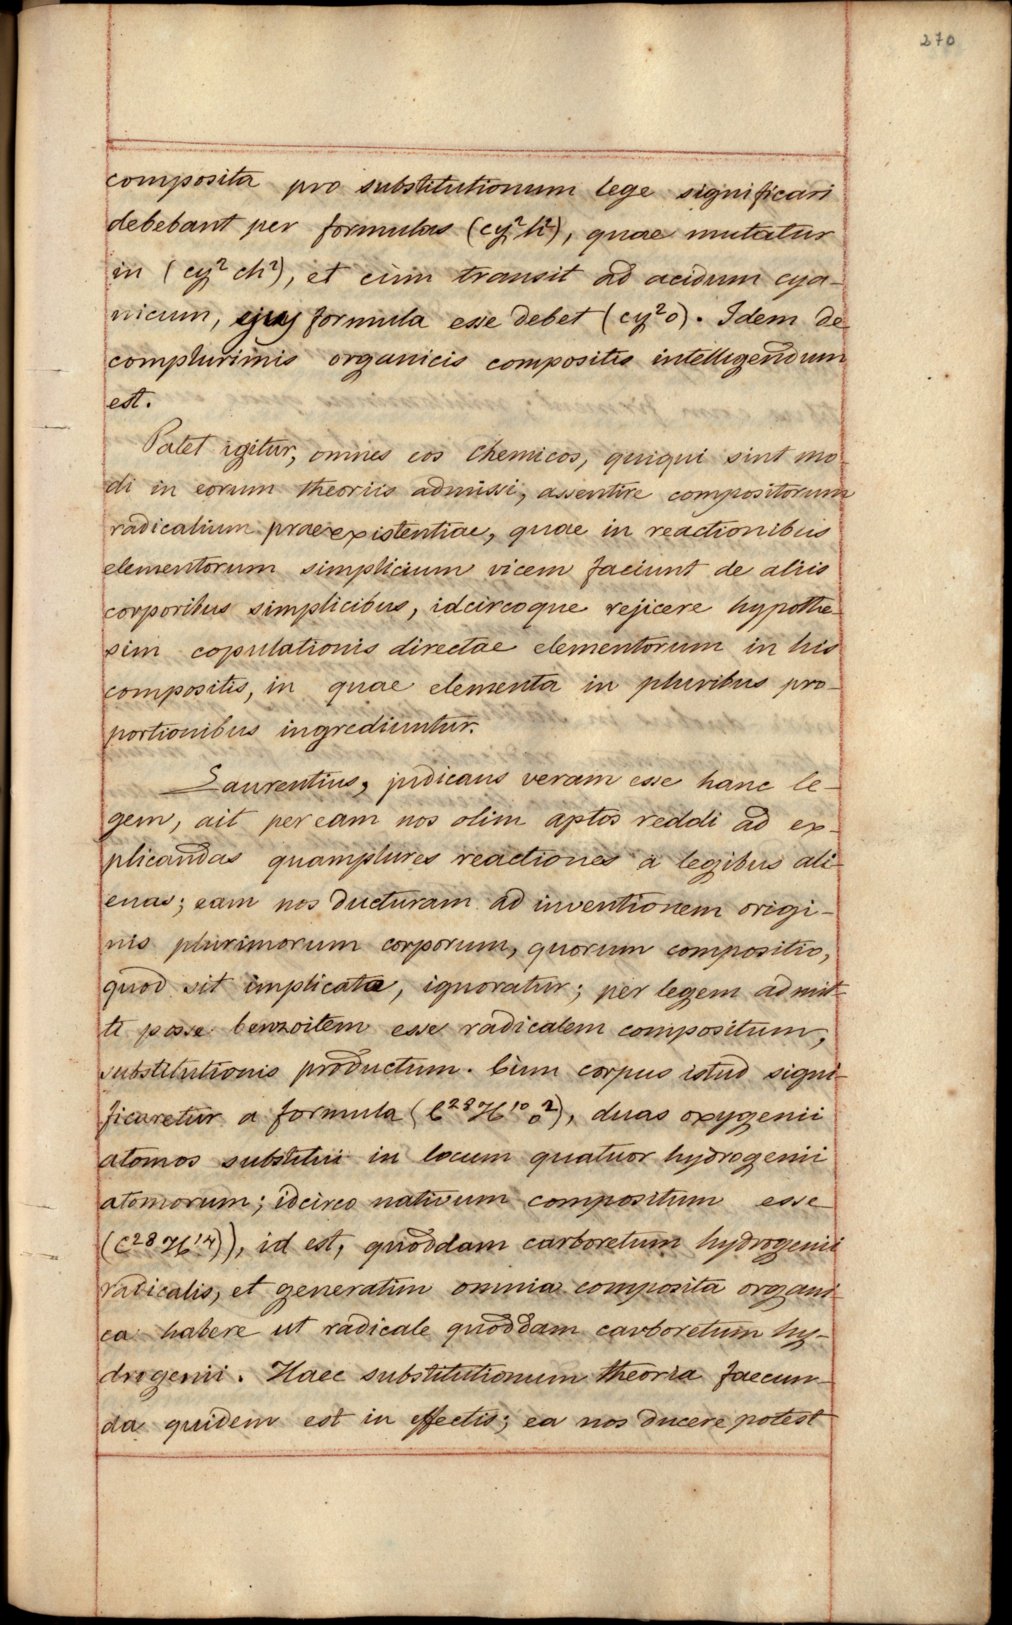 270
composita pro substitutionum lege significari
debebant per formulas (cy²h²), quae mutatur
in (cy² ch²), et cum transit ad acidum cya-
nicum, ejus formula esse debet (cy²o). Idem de
complurimis organicis compositis intelligendum
est.
Patet igitur, omnes eos chemicos, quiqui sint mo
di in eorum theoriis admissi, assentire compositorum
radicalium praeexistentiae, quae in reactionibus
elementorum simplicium vicem faciunt de aliis
corporibus simplicibus, idcircoque rejicere hypothe-
sim copulationis directae elementorum in his
compositis, in quae elementa in pluribus pro-
portionibus ingrediuntur.
Laurentius, judicans veram esse hanc le-
gem, ait per eam nos olim aptos reddi ad ex-
plicandas quamplures reactiones a legibus ali-
enas; eam nos ducturam ad inventionem origi-
nis plurimorum corporum, quorum compositio,
quod sit implicata, ignoratur; per legem admit-
ti posse benzoitem esse radicalem compositum,
substitutionis productum. Cum corpus istud signi-
ficaretur a formula (C²⁸H¹⁰o²), duas oxygenii
atomos substitui in locum quatuor hydrogenii
atomorum; idcirco nativum compositum esse
(C²⁸H¹⁴)), id est, quoddam carboretum hydrogenii
radicalis, et generatim omnia composita organi-
ca habere ut radicale quoddam carboretum hy-
drogenii. Haec substitutionum theoria faecun-
da quidem est in effectis; ea nos ducere potest